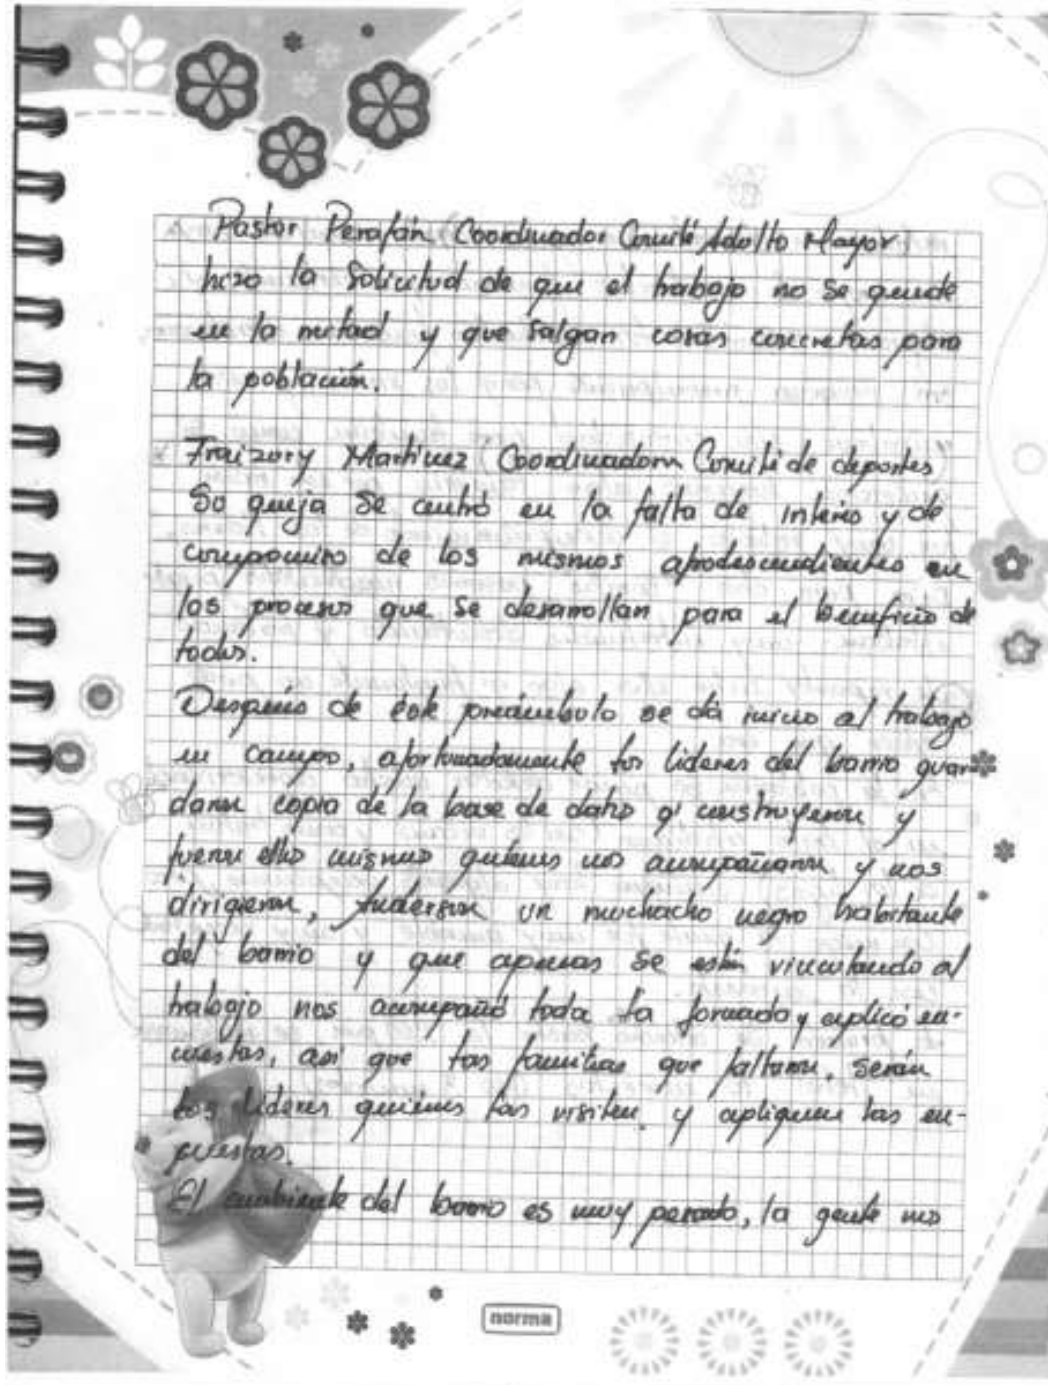 Pastor Perafán (Coordinador Comité Adulto Mayor)
hizo la solicitud de que el trabajo no se quede
en la mitad y que salgan cosas concretas para
la población.
Fraizury Martinez (Coordinadora Comité de deportes)
Su queja se centró en la falta de interés y de
compromiso de los mismos afrodescendientes en
los procesos que se desarrollan para el beneficio de
todos.
Después de éste preámbulo se dá inicio al trabajo
en campo, afortunadamente los lideres del barrio guar-
daron copia de la base de datos q' construyeron y
fueron ellos mismos quienes nos acompañaron y nos
dirigieron, Anderson un muchacho negro habitante
del barrio y que apenas se está vinculando al
trabajo nos acompañó toda la jornada y aplicó en-
cuestas, asi que las familias que faltaron, serán
los lideres quienes las visiten, y apliquen las en-
cuestas.
El ambiente del barrio es muy pesado, la gente nos
norma